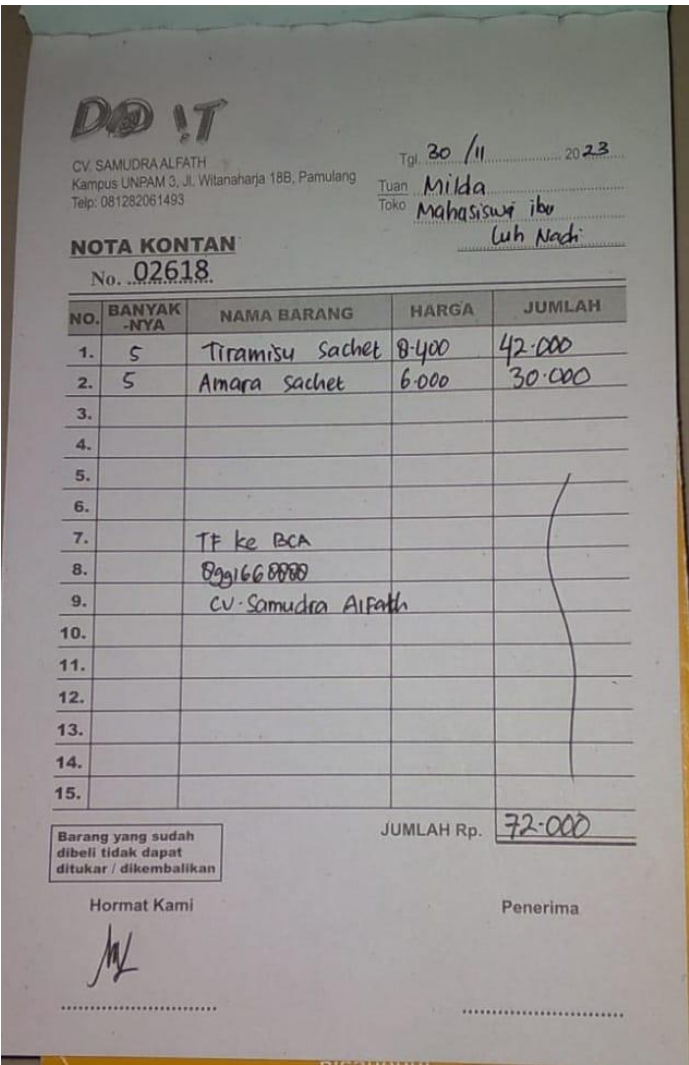 DO !T
CV. SAMUDRA ALFATH
Kampus UNPAM 3, Jl. Witanaharja 18B, Pamulang
Telp: 081282061493
Tgl. 30 / 11 2023
Tuan Milda
Toko Mahasiswi ibu
Luh Nadi
NOTA KONTAN
No. 02618
NO. BANYAK-NYA NAMA BARANG HARGA JUMLAH
1. 5 Tiramisu Sachet 8.400 42.000
2. 5 Amara Sachet 6.000 30.000
3.
4.
5.
6.
7. TF ke BCA
8. 8991668888
9. CV. Samudra AlFath
10.
11.
12.
13.
14.
15.
JUMLAH Rp. 72.000
Barang yang sudah
dibeli tidak dapat
ditukar / dikembalikan
Hormat Kami Penerima